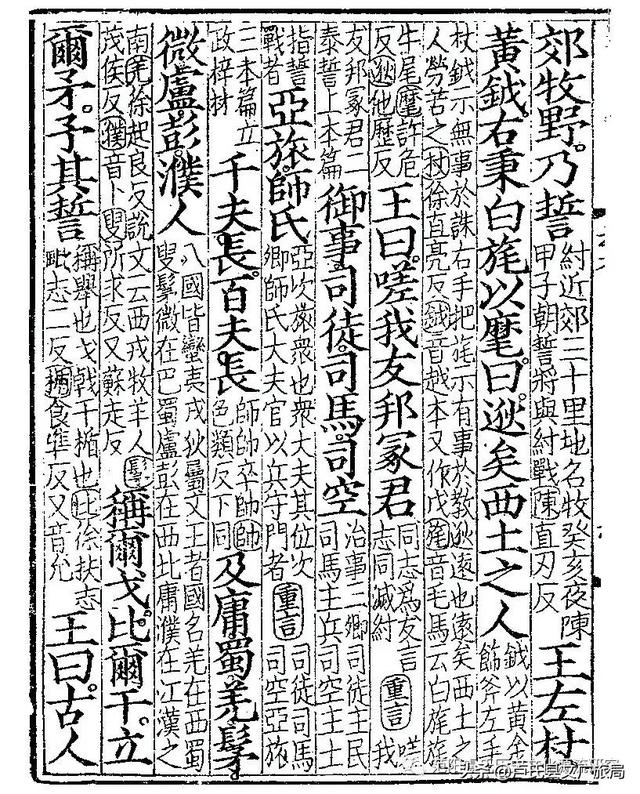 郊牧野乃誓紂近郊三十里地名牧癸亥夜陳甲子朝誓將與紂戰陳直刃反王左杖
黃鉞右秉白旄以麾曰逖矣西土之人鉞以黃金飾斧左手
杖鉞示無事於誅右手把旄示有事於教逖遠也遠矣西土之人勞苦之杖徐直亮反鉞音越本又作戉旄音毛馬云白旄旄
牛尾麾許危反逖他歷反王曰嗟我友邦冢君同志爲友言志同滅紂重言嗟我
友邦冢君二泰誓上本篇御事司徒司馬司空治事三卿司徒主民司馬主兵司空主土
指誓戰者亞旅師氏亞次旅衆也衆大夫其位次卿師氏大夫官以兵守門者重言司徒司馬司空亞旅
三本篇立政梓材千夫長百夫長師帥卒帥帥色類反下同及庸蜀羌髳
微盧彭濮人八國皆蠻夷戎狄屬文王者國名羌在西蜀叟髳微在巴蜀盧彭在西北庸濮在江漢之
南羌徐起良反說文云西戎牧羊人髳茂侯反濮音卜叟所求反又蘇走反稱爾戈比爾干立
爾矛予其誓稱舉也戈戟干楯也比徐扶志毗志二反楯食準反又音允王曰古人